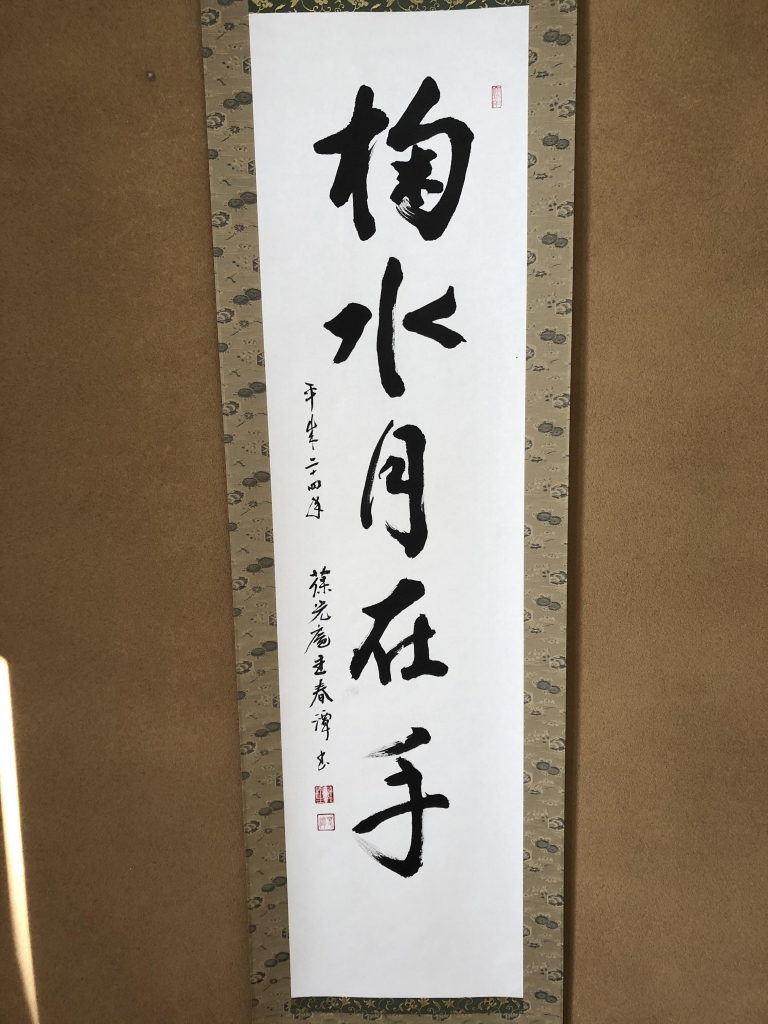 掬水月在手
平成二十四年 葆光庵主春潭書